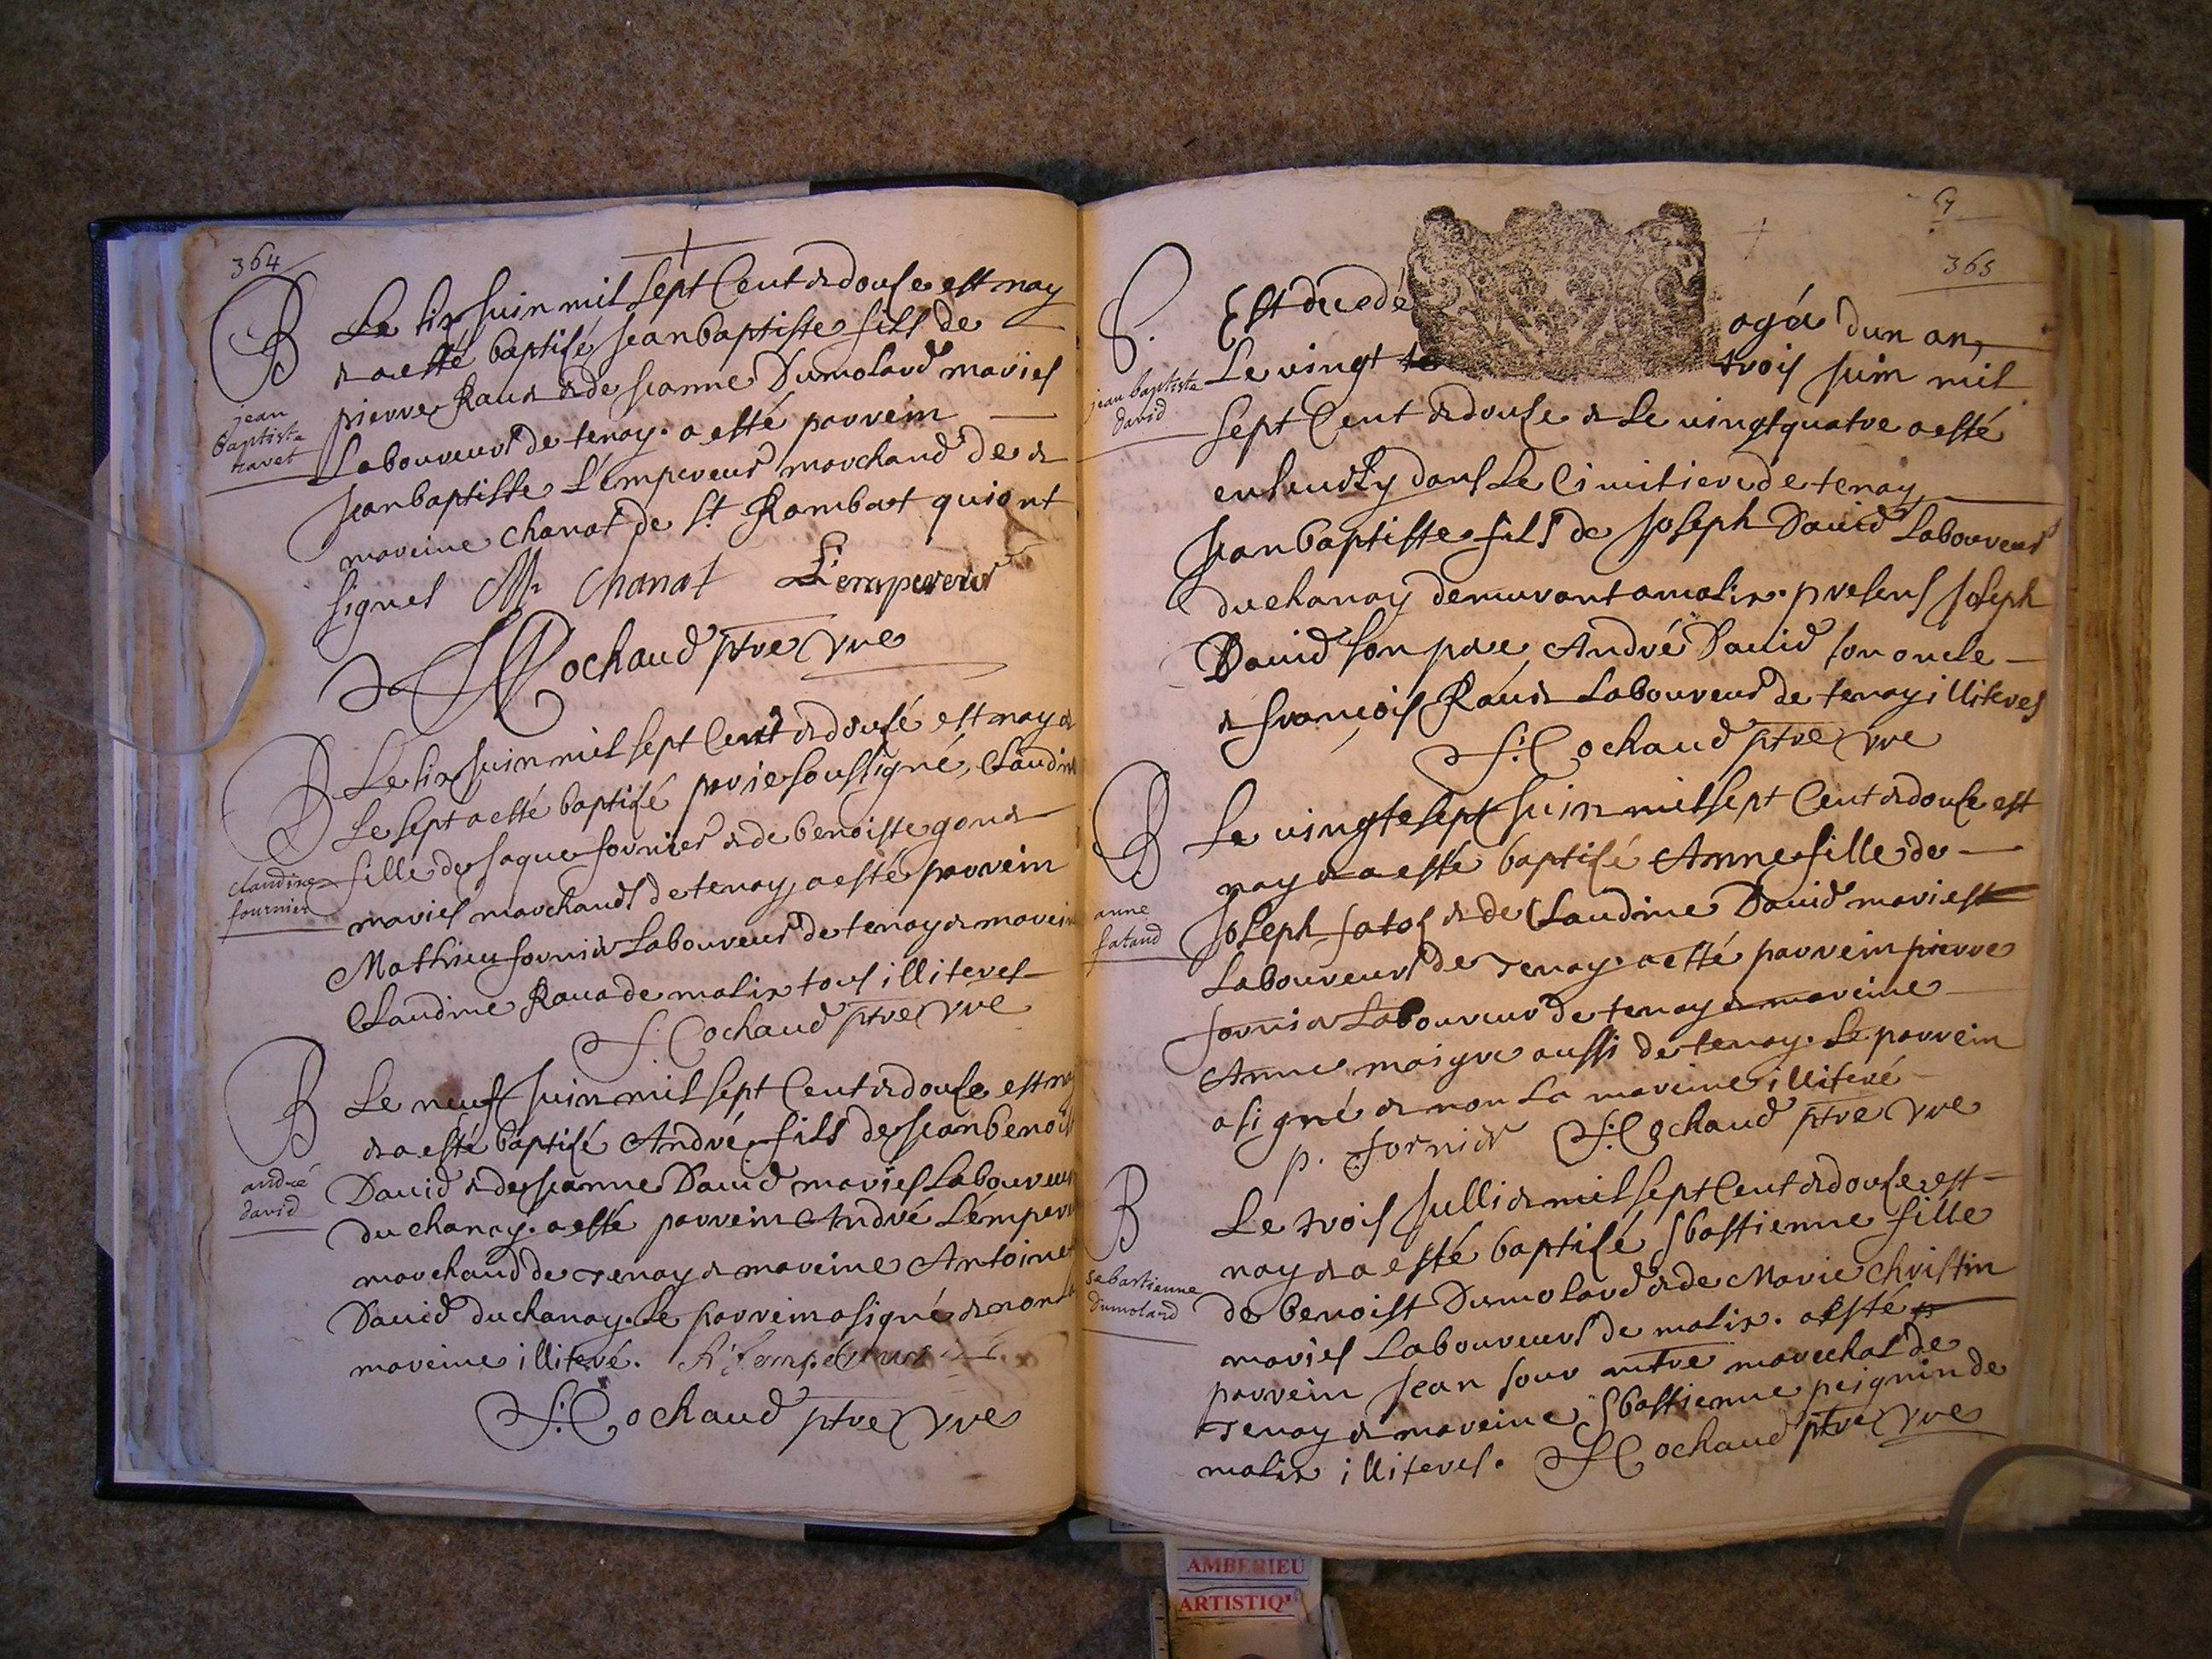 364
B
Le six juin mil sept Cent & douse est nay
& a esté baptisé jean baptiste fils de
pierre Raua & de jeanne Dumolard mariés
jean
baptiste
ravet
Laboureurs de tenay. a esté parrein
jean baptiste L'empereur marchand de &
mareine chanat de St Rambert qui ont
signés M Chanat L'empereur
Cochaud ptre vre
B
Le six juin mil sept Cent & dousé est nay &
Le sept a esté baptisé par ie soussigné, Claudine
fille de jaque fornier & de benoiste gona
claudine
fournier
mariés marchands de tenay, a esté parrein
Mathieu fornier Laboureur de tenay & marein
Claudine Raua de malix tous illiterés
f. Cochaud ptre vre
B
Le neuf juin mil sept Cent & douse est nay
& a esté baptisé André fils de jean benoist
andré
david
David & de jeanne David mariés Laboureurs
du chanay. a esté parrein André L'empereur
marchand de Tenay & mareine Antoinette
David du chanay. Le parrein a signé & non la
mareine illiteré. A Lempereur
f. Cochaud ptre vre
G
365
S.
Est decedé agée d'un an,
jean baptiste
david
Le vingt trois juin mil
sept Cent & douse & Le vingt quatre a esté
enseuely dans Le Cimitiere de tenay
jean baptiste fils de joseph David Laboureur
du chanay demeurant a malix. presens joseph
David son pere, André David son oncle
& françois Raua Laboureur de tenay illiterés
f. Cochaud ptre vre
B
Le vingte sept juin mil sept Cent & douse est
nay & a esté baptisé Anne fille de
anne
fatand
joseph fatos & de Claudine David mariés
Laboureurs de Tenay. a esté parrein pierre
fornier Laboureur de tenay & mareine
Anne maigre aussi de tenay. Le parrein
a signé & non La mareine illiteré
p. fornier f. Cochaud ptre vre
B
Le trois jullia mil sept Cent & douse est
nay & a esté baptisé Sbastienne fille
sebastienne
dumolard
de benoist Dumolard & de Marie christin
mariés Laboureurs de malix. a esté
parrein jean jour mtre marechal de
Tenay & mareine Sbastienne peignin de
malix illiterés. f. Cochaud ptre vre
AMBERIEU
ARTISTIQ